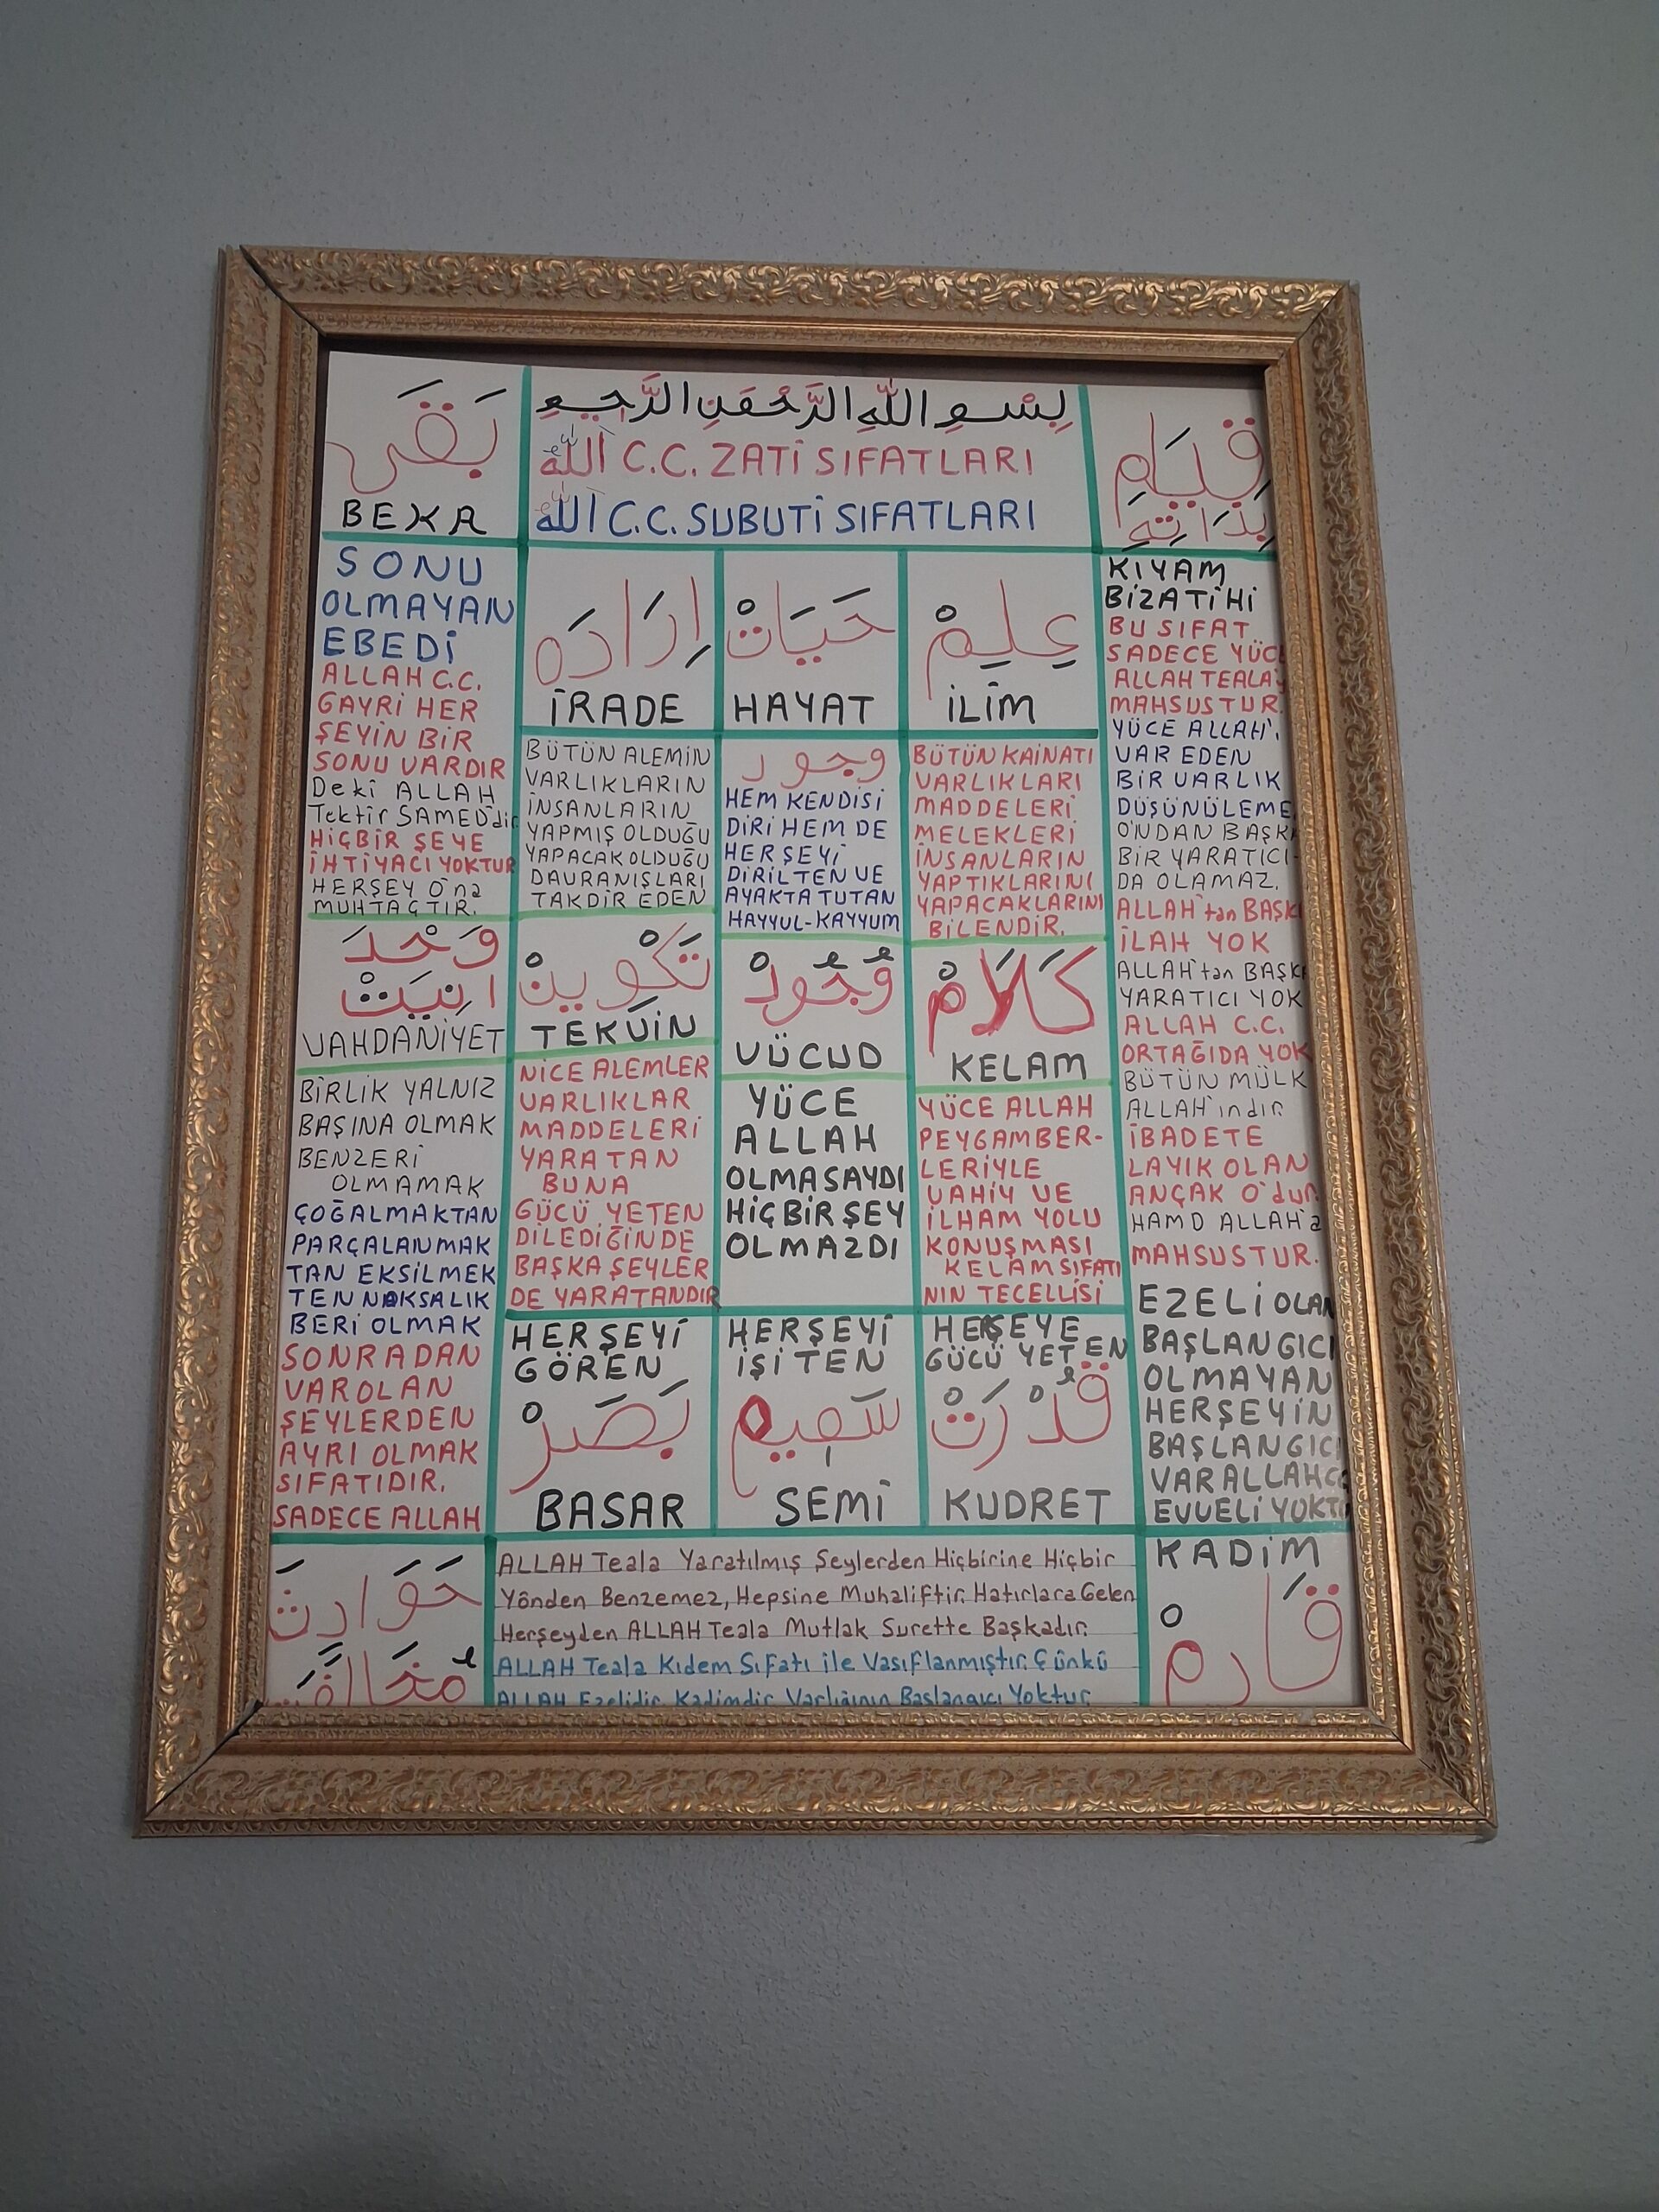 بَقَى
BEKA
بِسْمِ اللهِ الرَّحْمَنِ الرَّحِيمِ
الله C.C. ZATİ SIFATLARI
الله C.C. SUBUTİ SIFATLARI
قِيَام
بِذَاتِهِ
SONU
OLMAYAN
EBEDİ
ALLAH C.C.
GAYRİ HER
ŞEYİN BİR
SONU VARDIR
Deki ALLAH
Tektir SAMED'dir
HİÇBİR ŞEYE
İHTİYACI YOKTUR
HERŞEY O'na
MUHTAÇTIR.
وَحْدَ
انِيَتْ
VAHDANİYET
BİRLİK YALNIZ
BAŞINA OLMAK
BENZERİ
OLMAMAK
ÇOĞALMAKTAN
PARÇALANMAK
TAN EKSİLMEK
TEN NOKSALIK
BERİ OLMAK
SONRADAN
VAROLAN
ŞEYLERDEN
AYRI OLMAK
SIFATIDIR.
SADECE ALLAH
حَوَادِثَ
مُخَالَفَت
اِرَادَه
İRADE
BÜTÜN ALEMİN
VARLIKLARIN
İNSANLARIN
YAPMIŞ OLDUĞU
YAPACAK OLDUĞU
DAVRANIŞLARI
TAKDİR EDEN
تَكْوِينْ
TEKVİN
NİCE ALEMLER
VARLIKLAR
MADDELERİ
YARATAN
BUNA
GÜCÜ YETEN
DİLEDİĞİNDE
BAŞKA ŞEYLER
DE YARATANDIR
HERŞEYİ
GÖREN
بَصَرْ
BASAR
حَيَاتْ
HAYAT
وجود
HEM KENDİSİ
DİRİ HEM DE
HERŞEYİ
DİRİLTEN VE
AYAKTA TUTAN
HAYYUL-KAYYUM
وُجُودْ
VÜCUD
YÜCE
ALLAH
OLMASAYDI
HİÇBİRŞEY
OLMAZDI
HERŞEYİ
İŞİTEN
سَمِيم
SEMİ
عِلِمْ
İLİM
BÜTÜN KAİNATI
VARLIKLARI
MADDELERİ
MELEKLERİ
İNSANLARIN
YAPTIKLARINI
YAPACAKLARINI
BİLENDİR.
كَلَامْ
KELAM
YÜCE ALLAH
PEYGAMBER-
LERİYLE
VAHİY VE
İLHAM YOLU
KONUŞMASI
KELAM SIFATI
NIN TECELLİSİ
HERŞEYE
GÜCÜ YETEN
قُدْرَتْ
KUDRET
KIYAM
BİZATİHİ
BU SIFAT
SADECE YÜC
ALLAH TEALA
MAHSUSTUR.
YÜCE ALLAH'I
VAR EDEN
BİR VARLIK
DÜŞÜNÜLEME
O'NDAN BAŞK
BİR YARATICI
DA OLAMAZ.
ALLAH'tan BAŞK
İLAH YOK
ALLAH'tan BAŞK
YARATICI YOK
ALLAH C.C.
ORTAĞIDA YOK
BÜTÜN MÜLK
ALLAH'ındır
İBADETE
LAYIK OLAN
ANÇAK O'dur
HAMD ALLAH'a
MAHSUSTUR.
EZELİ OLAN
BAŞLANGICI
OLMAYAN
HERŞEYİN
BAŞLANGICI
VAR ALLAH C
EVVELİ YOKT
KADİM
قَادِمْ
ALLAH Teala Yaratılmış Şeylerden Hiçbirine Hiçbir
Yönden Benzemez, Hepsine Muhaliftir. Hatırlara Gelen
Herşeyden ALLAH Teala Mutlak Surette Başkadır.
ALLAH Teala Kıdem Sıfatı ile Vasıflanmıştır. Çünkü
ALLAH Ezelidir. Kadimdir. Varlığının Başlangıcı Yoktur.